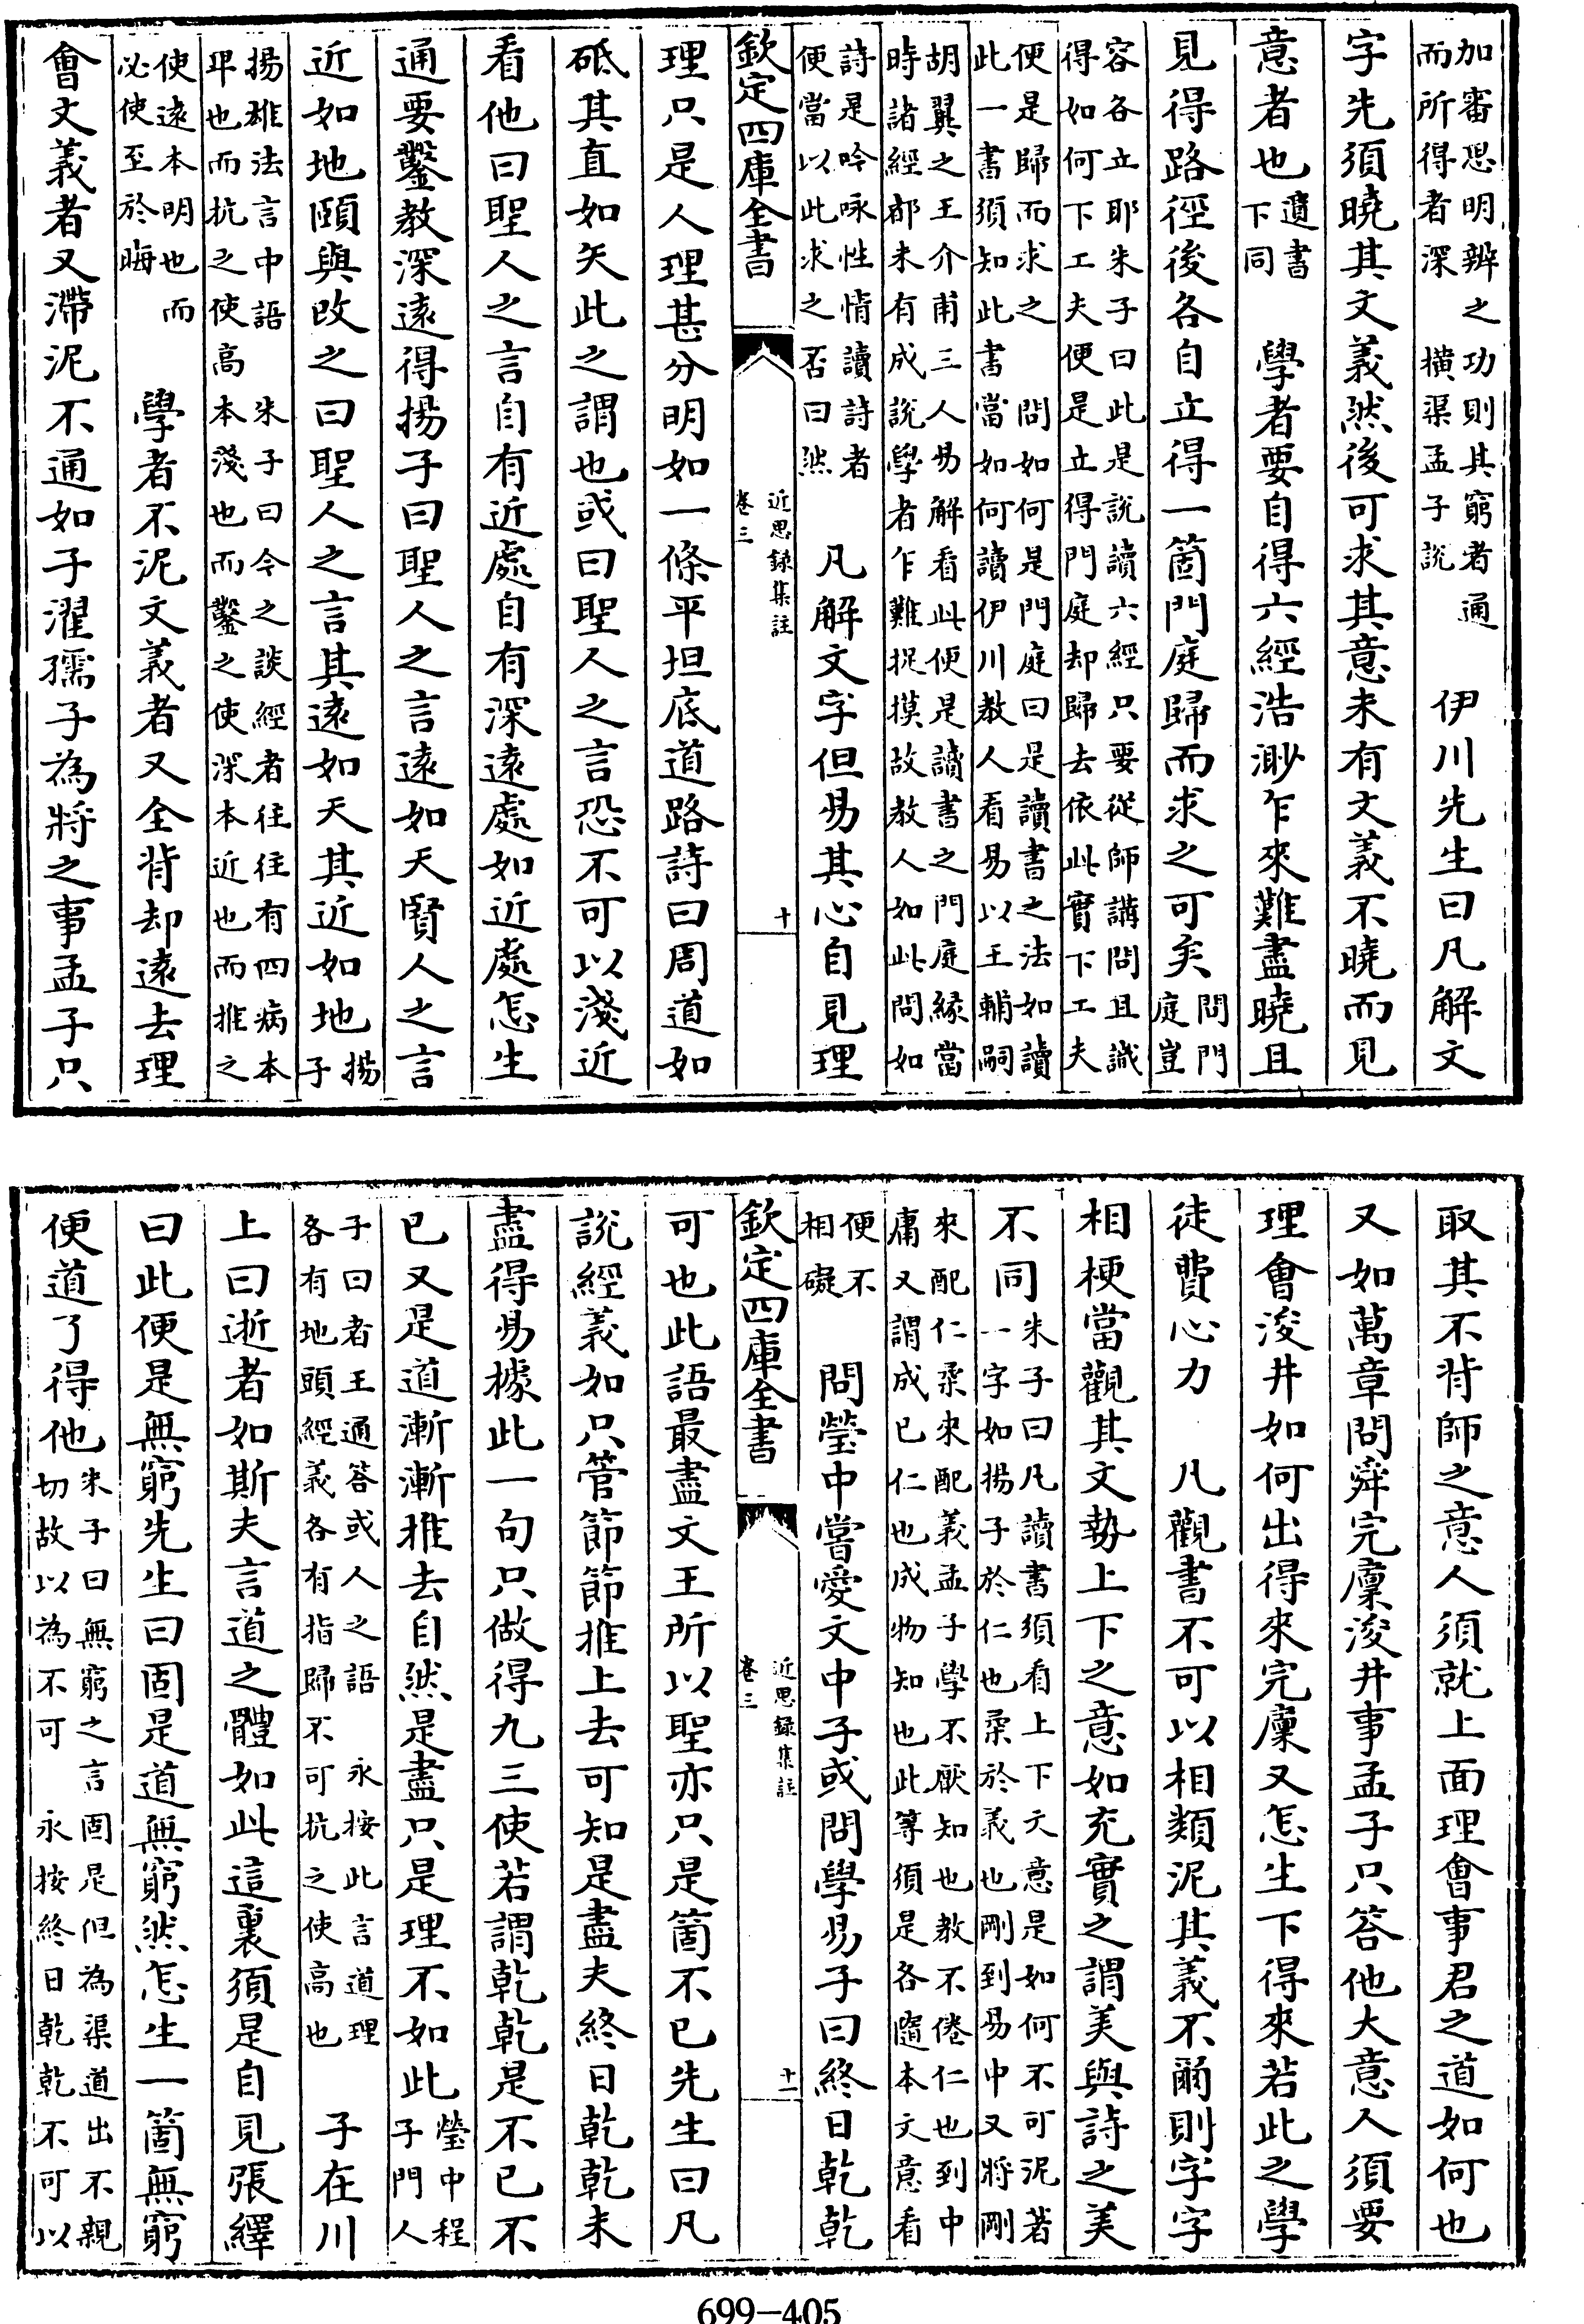 加審思明辨之功則其窮者通
而所得者深 橫渠孟子說
伊川先生曰凡解文
字先須曉其文義然後可求其意未有文義不曉而見
意者也遺書下同 學者要自得六經浩渺乍來難盡曉且
見得路徑後各自立得一箇門庭歸而求之可矣問門庭豈
容各立耶朱子曰此是說讀六經只要從師講問且識
得如何下工夫便是立得門庭却歸去依此實下工夫
便是歸而求之 問如何是門庭曰是讀書之法如讀
此一書須知此書當如何讀伊川教人看易以王輔嗣
胡翼之王介甫三人易解看此便是讀書之門庭緣當
時諸經都未有成說學者乍難捉摸故教人如此問如
詩是吟咏性情讀詩者
便當以此求之否曰然
凡解文字但易其心自見理
欽定四庫全書
近思録集註
卷三
十
理只是人理甚分明如一條平坦底道路詩曰周道如
砥其直如矢此之謂也或曰聖人之言恐不可以淺近
看他曰聖人之言自有近處自有深遠處如近處怎生
通要鑿教深遠得揚子曰聖人之言遠如天賢人之言
近如地頤與改之曰聖人之言其遠如天其近如地揚子
揚雄法言中語 朱子曰今之談經者往往有四病本
卑也而抗之使高本淺也而鑿之使深本近也而推之
使遠本明也而
必使至於晦
學者不泥文義者又全背却遠去理
會文義者又滯泥不通如子濯孺子為將之事孟子只
取其不背師之意人須就上面理會事君之道如何也
又如萬章問舜完廩浚井事孟子只答他大意人須要
理會浚井如何出得來完廩又怎生下得來若此之學
徒費心力 凡觀書不可以相類泥其義不爾則字字
相梗當觀其文勢上下之意如充實之謂美與詩之美
不同
朱子曰凡讀書須看上下文意是如何不可泥著
一字如揚子於仁也柔於義也剛到易中又將剛
來配仁柔來配義孟子學不厭知也教不倦仁也到中
庸又謂成已仁也成物知也此等須是各隨本文意看
便不
相礙
問瑩中嘗愛文中子或問學易子曰終日乾乾
欽定四庫全書
近思録集註
卷三
十一
可也此語最盡文王所以聖亦只是箇不已先生曰凡
說經義如只管節節推上去可知是盡夫終日乾乾未
盡得易據此一句只做得九三使若謂乾乾是不已不
已又是道漸漸推去自然是盡只是理不如此
瑩中程
子門人
子曰者王通答或人之語 永按此言道理
各有地頭經義各有指歸不可抗之使高也
子在川
上曰逝者如斯夫言道之體如此這裏須是自見張繹
曰此便是無窮先生曰固是道無窮然怎生一箇無窮
便道了得他
朱子曰無窮之言固是但為渠道出不親
切故以為不可 永按終日乾乾不可以
699-405